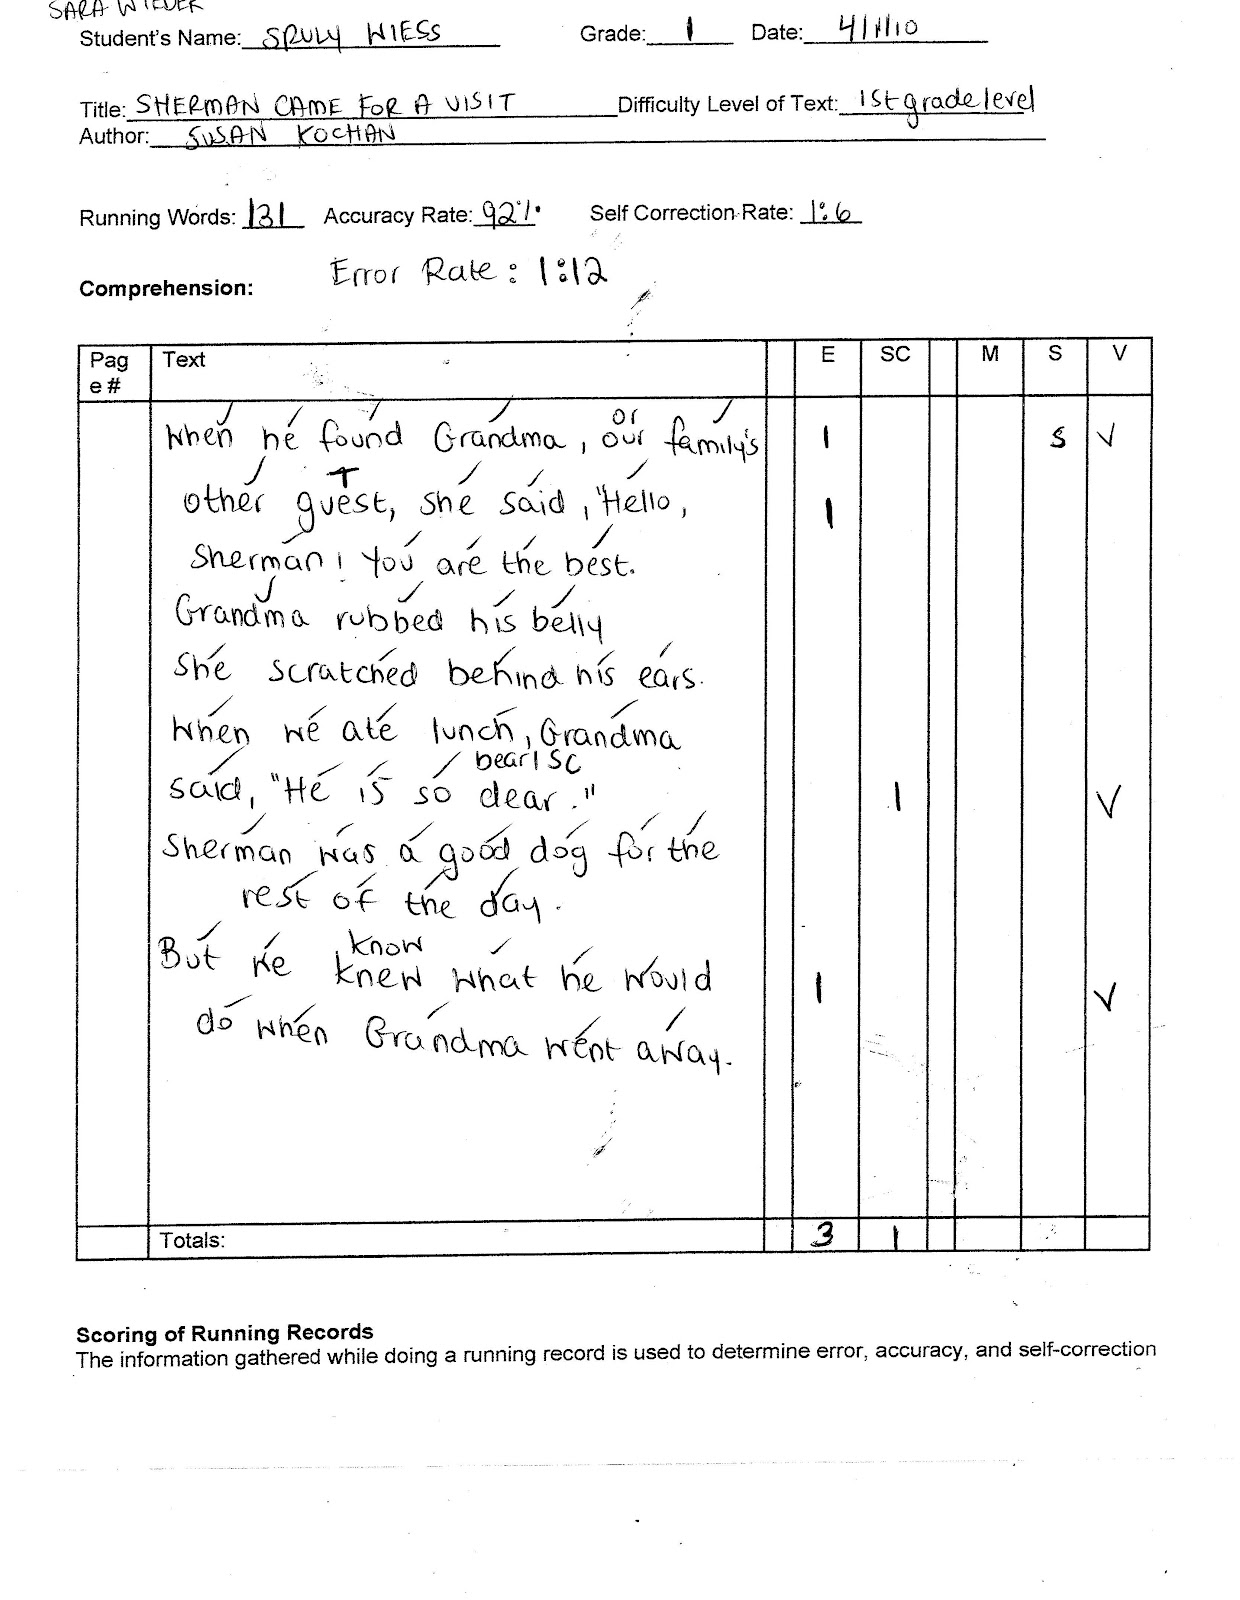 SARA WIEDER
Student's Name: SRULY WIESS Grade: 1 Date: 4/1/10
Title: SHERMAN CAME FOR A VISIT Difficulty Level of Text: 1st grade level
Author: SUSAN KOCHAN
Running Words: 131 Accuracy Rate: 92% Self Correction Rate: 1:6
Error Rate: 1:12
Comprehension:
Pag
e # Text E SC M S V
or
When he found Grandma, our family's 1 S V
T
other guest, she said, "Hello, 1
Sherman! You are the best.
Grandma rubbed his belly
She scratched behind his ears.
When we ate lunch, Grandma
bear| SC
said, "He is so dear." 1 V
Sherman was a good dog for the
rest of the day.
know
But we knew what he would 1 V
do when Grandma went away.
Totals: 3 1
Scoring of Running Records
The information gathered while doing a running record is used to determine error, accuracy, and self-correction